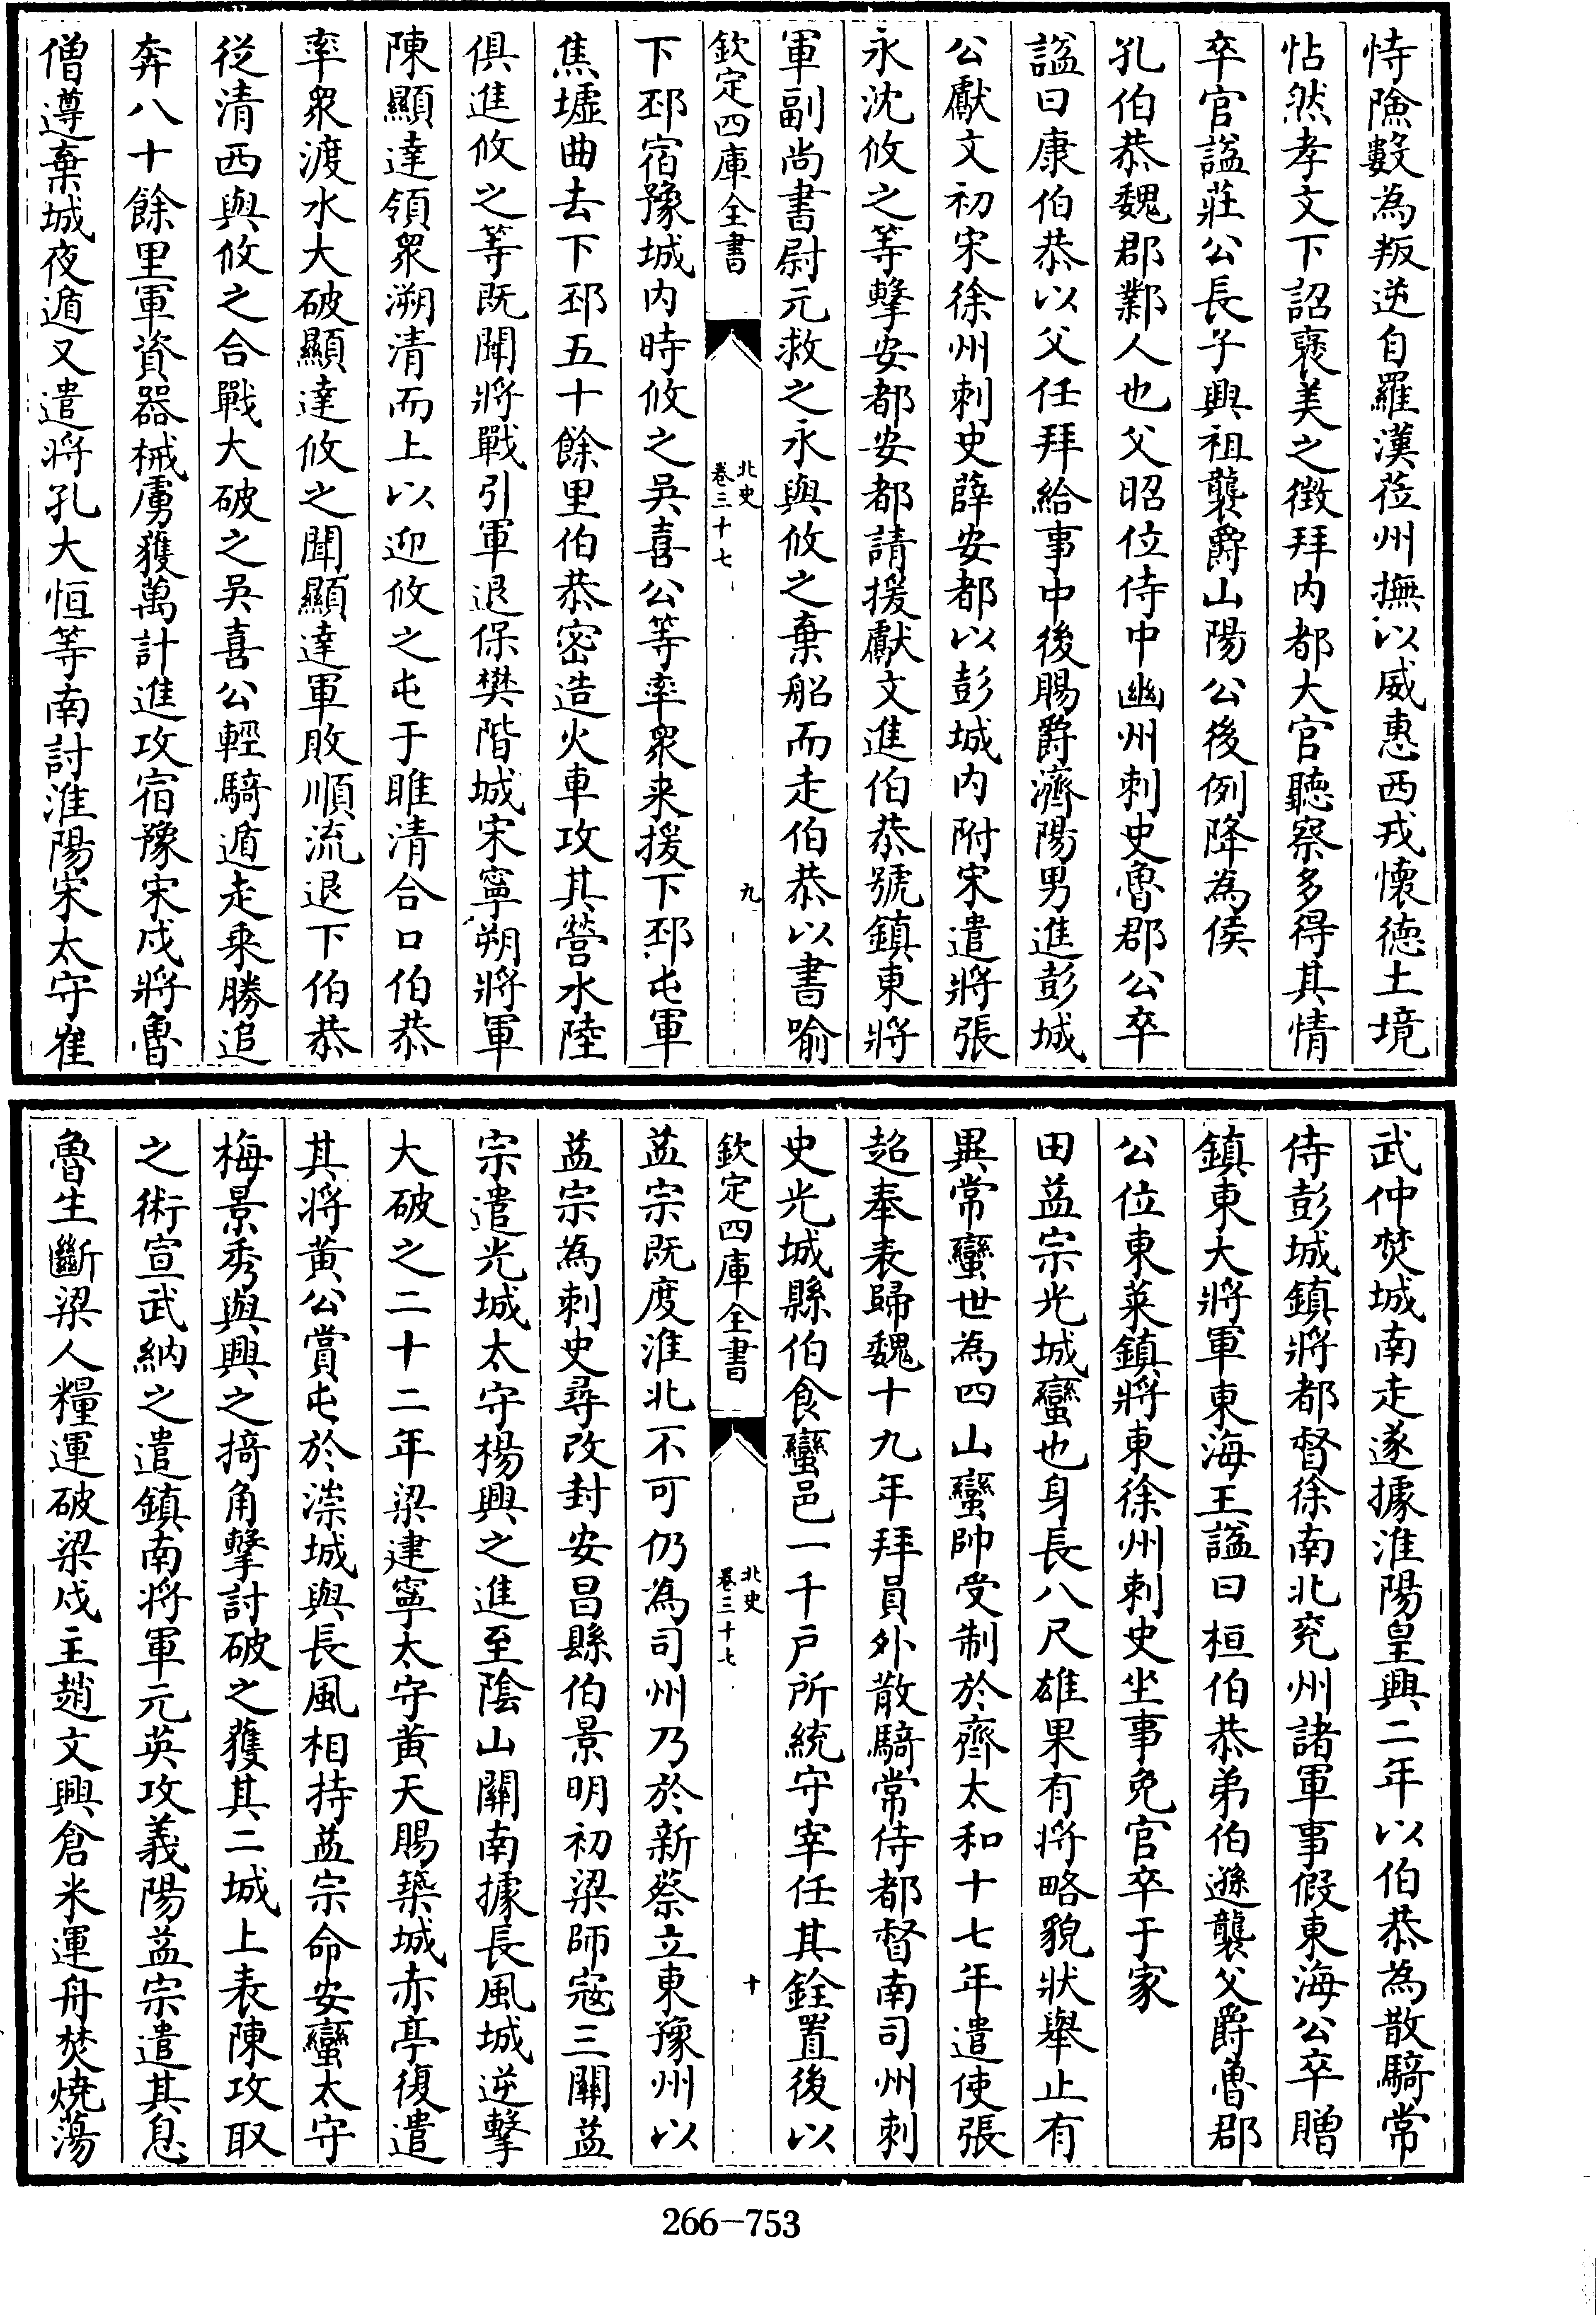 恃險數為叛逆自羅漢蒞州撫以威惠西戎懷徳土境
怗然孝文下詔褒美之徴拜内都大官聽察多得其情
卒官諡莊公長子興祖襲爵山陽公後例降為侯
孔伯恭魏郡鄴人也父昭位侍中幽州刺史魯郡公卒
諡曰康伯恭以父任拜給事中後賜爵濟陽男進彭城
公獻文初宋徐州刺史薛安都以彭城内附宋遣將張
永沈攸之等擊安都安都請援獻文進伯恭號鎮東將
軍副尚書尉元救之永與攸之棄船而走伯恭以書喻
欽定四庫全書
北史
卷三十七
九
下邳宿豫城内時攸之吳喜公等率衆来援下邳屯軍
焦墟曲去下邳五十餘里伯恭密造火車攻其營水陸
俱進攸之等既聞將戰引軍退保樊階城宋寧朔將軍
陳顯達領衆溯清而上以迎攸之屯于睢清合口伯恭
率衆渡水大破顯達攸之聞顯達軍敗順流退下伯恭
從清西與攸之合戰大破之吳喜公輕騎遁走乘勝追
奔八十餘里軍資器械虜獲萬計進攻宿豫宋戍將魯
僧遵棄城夜遁又遣將孔大恒等南討淮陽宋太守崔
武仲焚城南走遂據淮陽皇興二年以伯恭為散騎常
侍彭城鎮將都督徐南北兖州諸軍事假東海公卒贈
鎮東大將軍東海王諡曰桓伯恭弟伯遜襲父爵魯郡
公位東萊鎮將東徐州刺史坐事免官卒于家
田益宗光城蠻也身長八尺雄果有將略貌狀舉止有
異常蠻世為四山蠻帥受制於齊太和十七年遣使張
超奉表歸魏十九年拜員外散騎常侍都督南司州刺
史光城縣伯食蠻邑一千戸所統守宰任其銓置後以
欽定四庫全書
北史
卷三十七
十
益宗既度淮北不可仍為司州乃於新蔡立東豫州以
益宗為刺史尋改封安昌縣伯景明初梁師寇三關益
宗遣光城太守楊興之進至陰山關南據長風城逆擊
大破之二十二年梁建寧太守黄天賜築城赤亭復遣
其將黄公賞屯於漴城與長風相持益宗命安蠻太守
梅景秀與興之掎角擊討破之獲其二城上表陳攻取
之術宣武納之遣鎮南將軍元英攻義陽益宗遣其息
魯生斷梁人糧運破梁戍主趙文興倉米運舟焚燒蕩
266-753